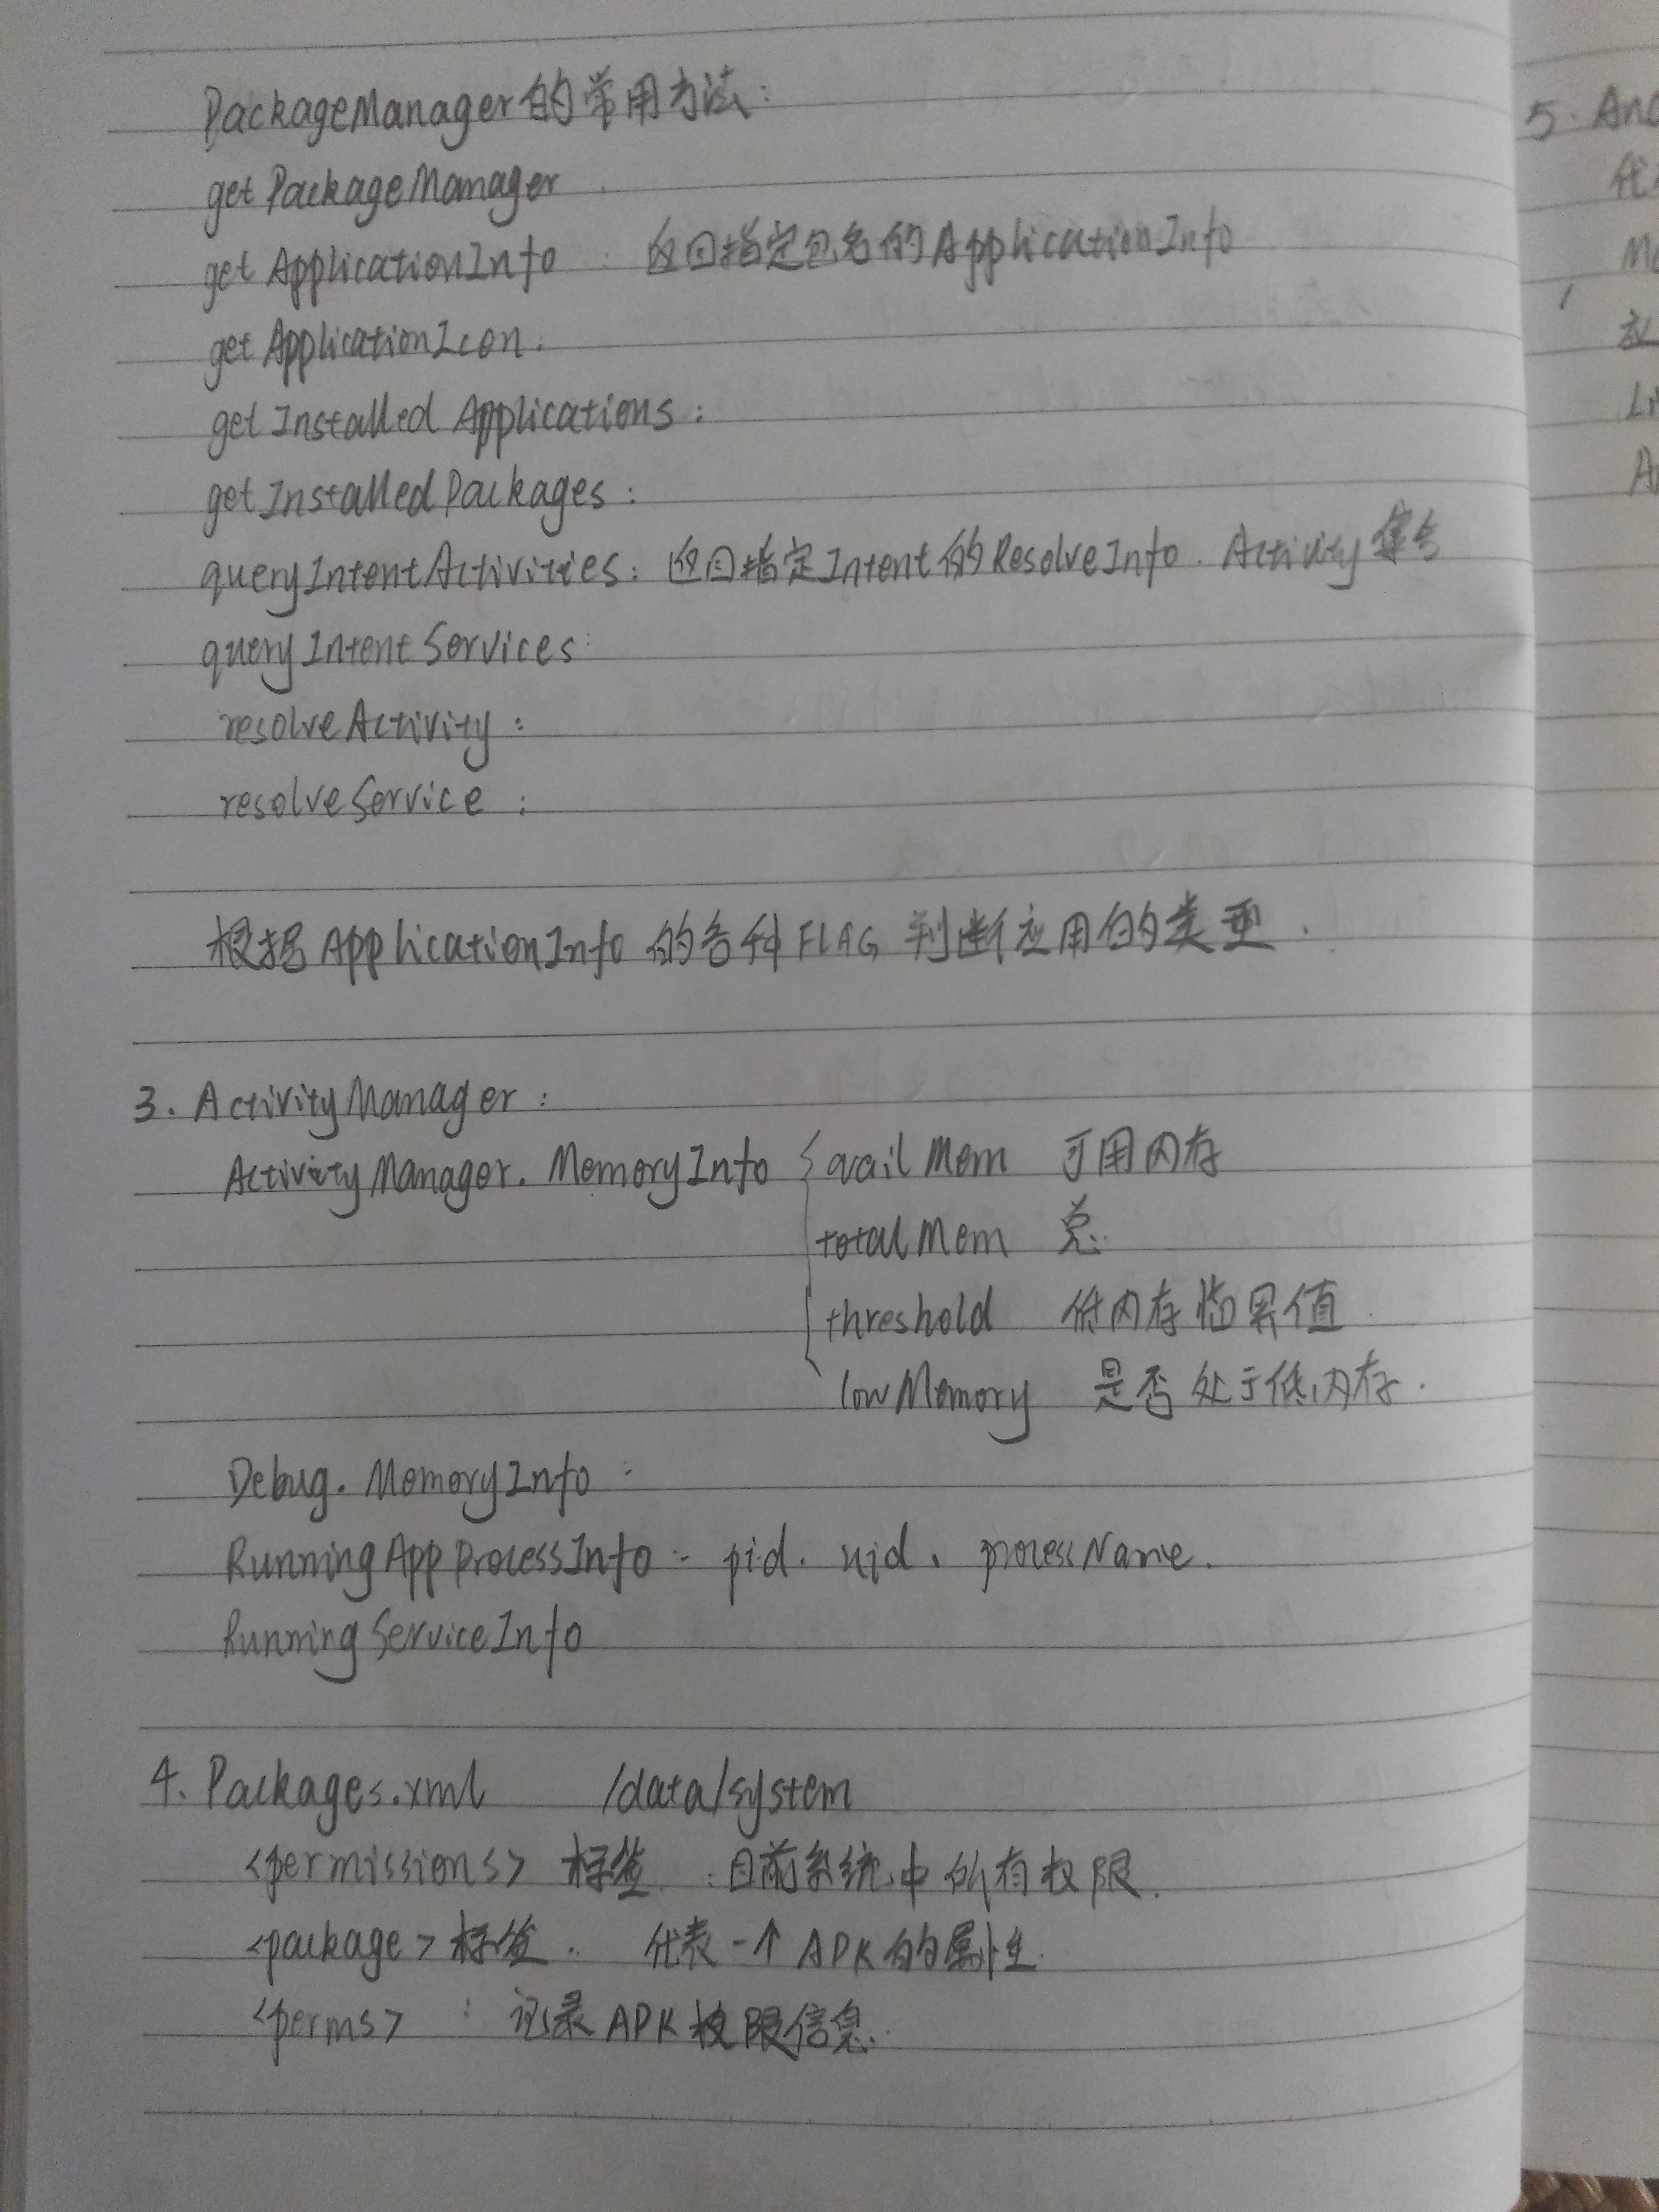 PackageManager的常用方法:
getPackageManager
getApplicationInfo : 返回指定包名的ApplicationInfo
getApplicationIcon:
getInstalledApplications:
getInstalledPackages:
queryIntentActivities: 返回指定Intent的ResolveInfo. Activity集合
queryIntentServices:
resolveActivity:
resolveService:
根据ApplicationInfo的各种FLAG判断应用的类型.
3. ActivityManager:
ActivityManager.MemoryInfo { availMem 可用内存
totalMem 总
threshold 低内存临界值
lowMemory 是否处于低内存.
Debug.MemoryInfo:
RunningAppProcessInfo: pid. uid. processName.
RunningServiceInfo
4. Packages.xml /data/system
<permissions> 标签 : 目前系统中所有权限.
<package> 标签. 代表一个APK的属性.
<perms> : 记录APK权限信息.
5. And
Li